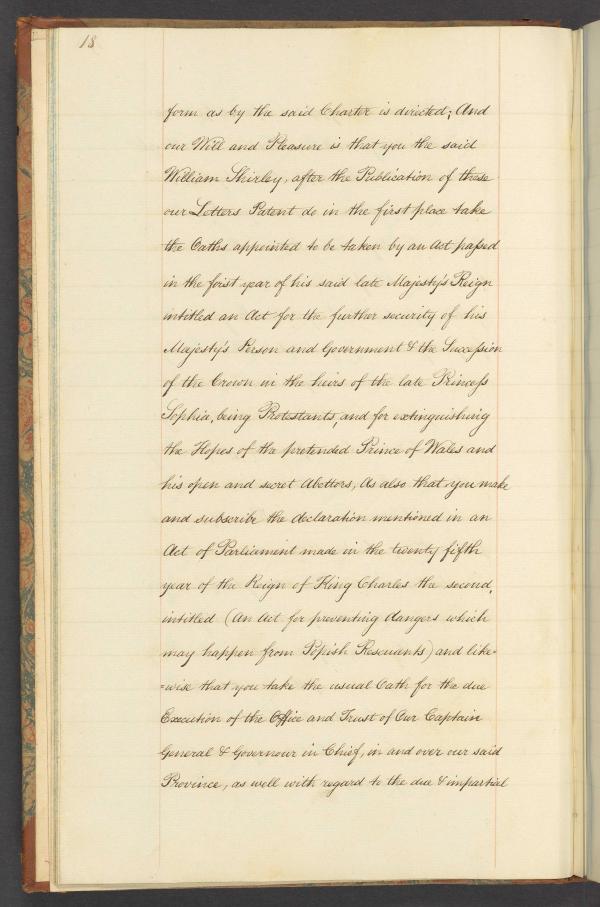 18
form as by the said Charter is directed; And
our Will and Pleasure is that you the said
William Shirley, after the Publication of these
our Letters Patent do in the first place take
the Oaths appointed to be taken by an Act passed
in the first year of his said late Majesty's Reign
intitled an Act for the further security of his
Majesty's Person and Government & the Succession
of the Crown in the heirs of the late Princess
Sophia, being Protestants, and for extinguishing
the Hopes of the pretended Prince of Wales and
his open and secret Abettors, As also that you make
and subscribe the declaration mentioned in an
Act of Parliament made in the twenty fifth
year of the Reign of King Charles the second,
intitled (An Act for preventing dangers which
may happen from Popish Rescuants) and like=
=wise that you take the usual Oath for the due
Execution of the Office and Trust of Our Captain
General & Governour in Chief, in and over our said
Province, as well with regard to the due & impartial